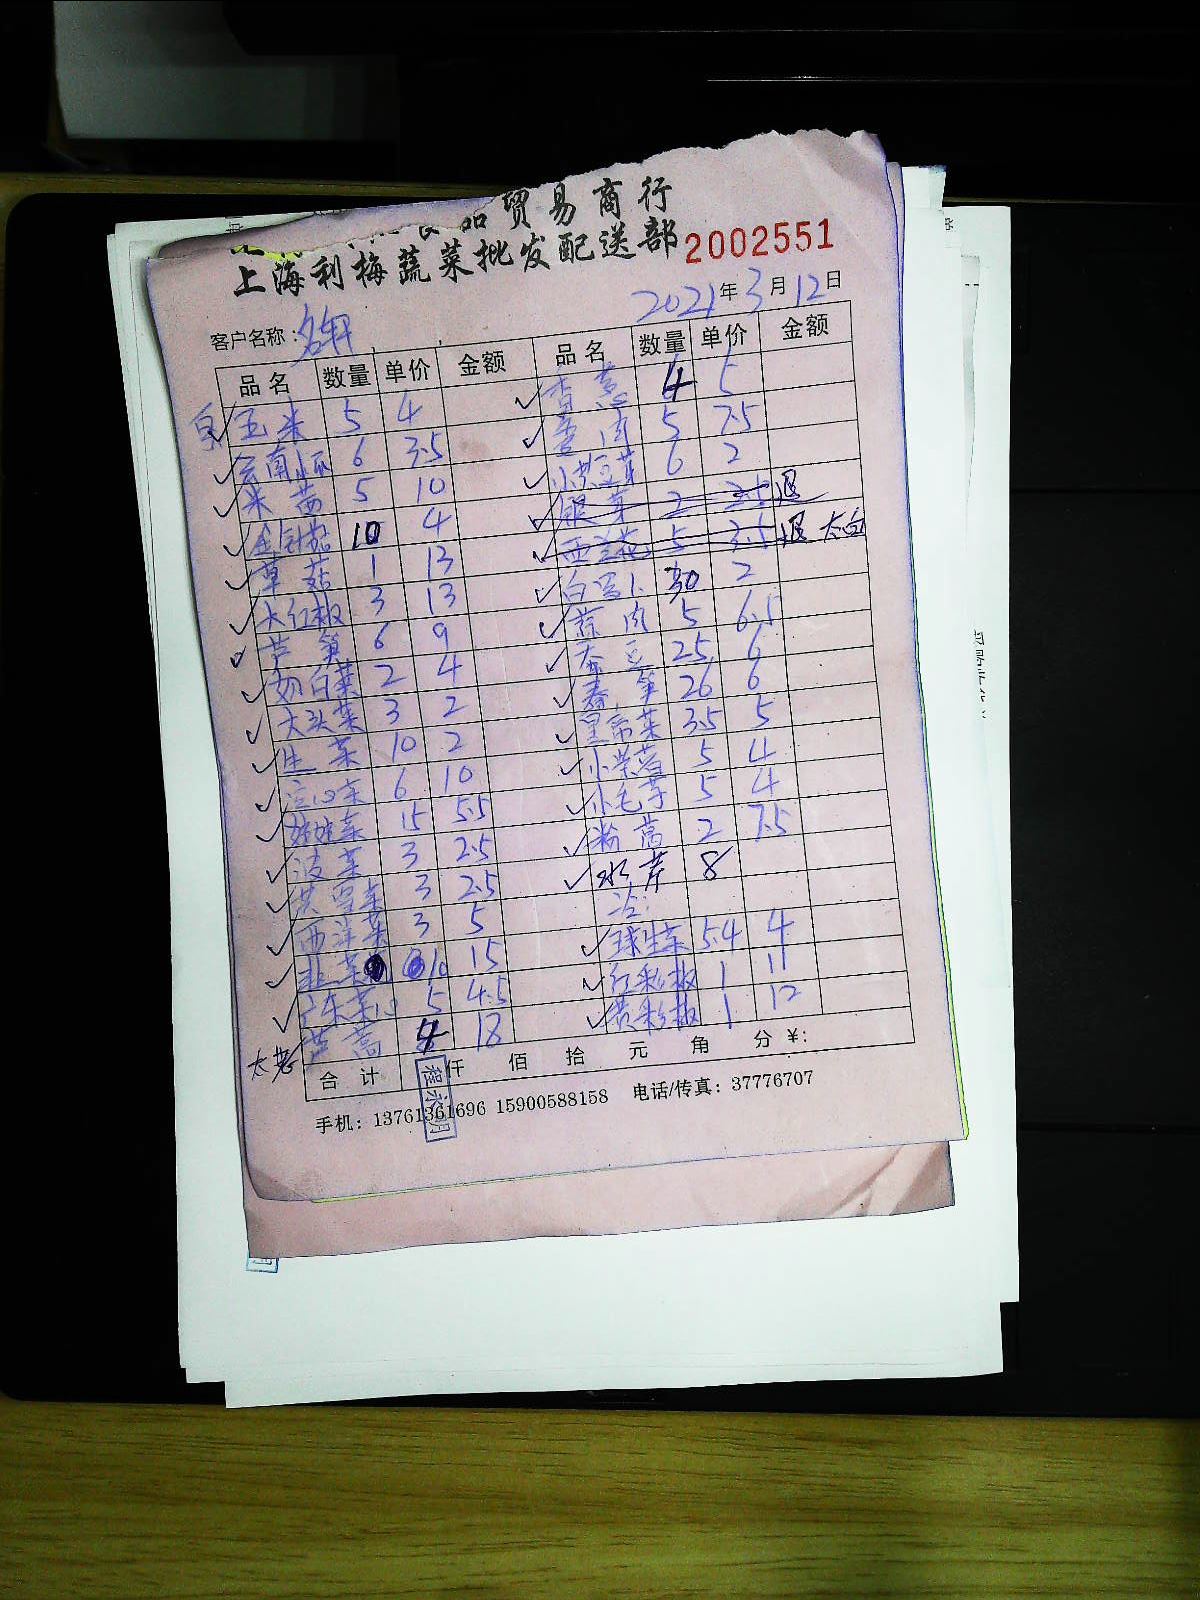 贸易商行
上海利梅蔬菜批发配送部 2002551
2021年3月12日
客户名称：名轩
品名 数量 单价 金额 品名 数量 单价 金额
玉米 5 4 香葱 4 5
云南小瓜 6 3.5 姜肉 5 7.5
米茜 5 10 小黄豆芽 6 2
金针菇 10 4 银芽 2 2.5 退
草菇 1 13 西兰花 5 3.5 退 太白
大红椒 3 13 白 30 2
芦笋 6 9 蒜肉 5 6.5
奶白菜 2 4 蚕豆 25 6
大头菜 3 2 春笋 26 6
生菜 10 2 皇帝菜 3.5 5
6 10 小 5 4
娃娃菜 15 5.5 小毛芋 5 4
波菜 3 2.5 粉 2 7.5
3 2.5 水芹 8
西洋菜 3 5
韭菜 10 15 球生菜 5.4 4
广东菜心 5 4.5 红彩椒 1 11
太老 芦蒿 4 18 黄彩椒 1 12
合计 仟 佰 拾 元 角 分 ¥:
程永明
手机：13761361696 15900588158 电话/传真：37776707